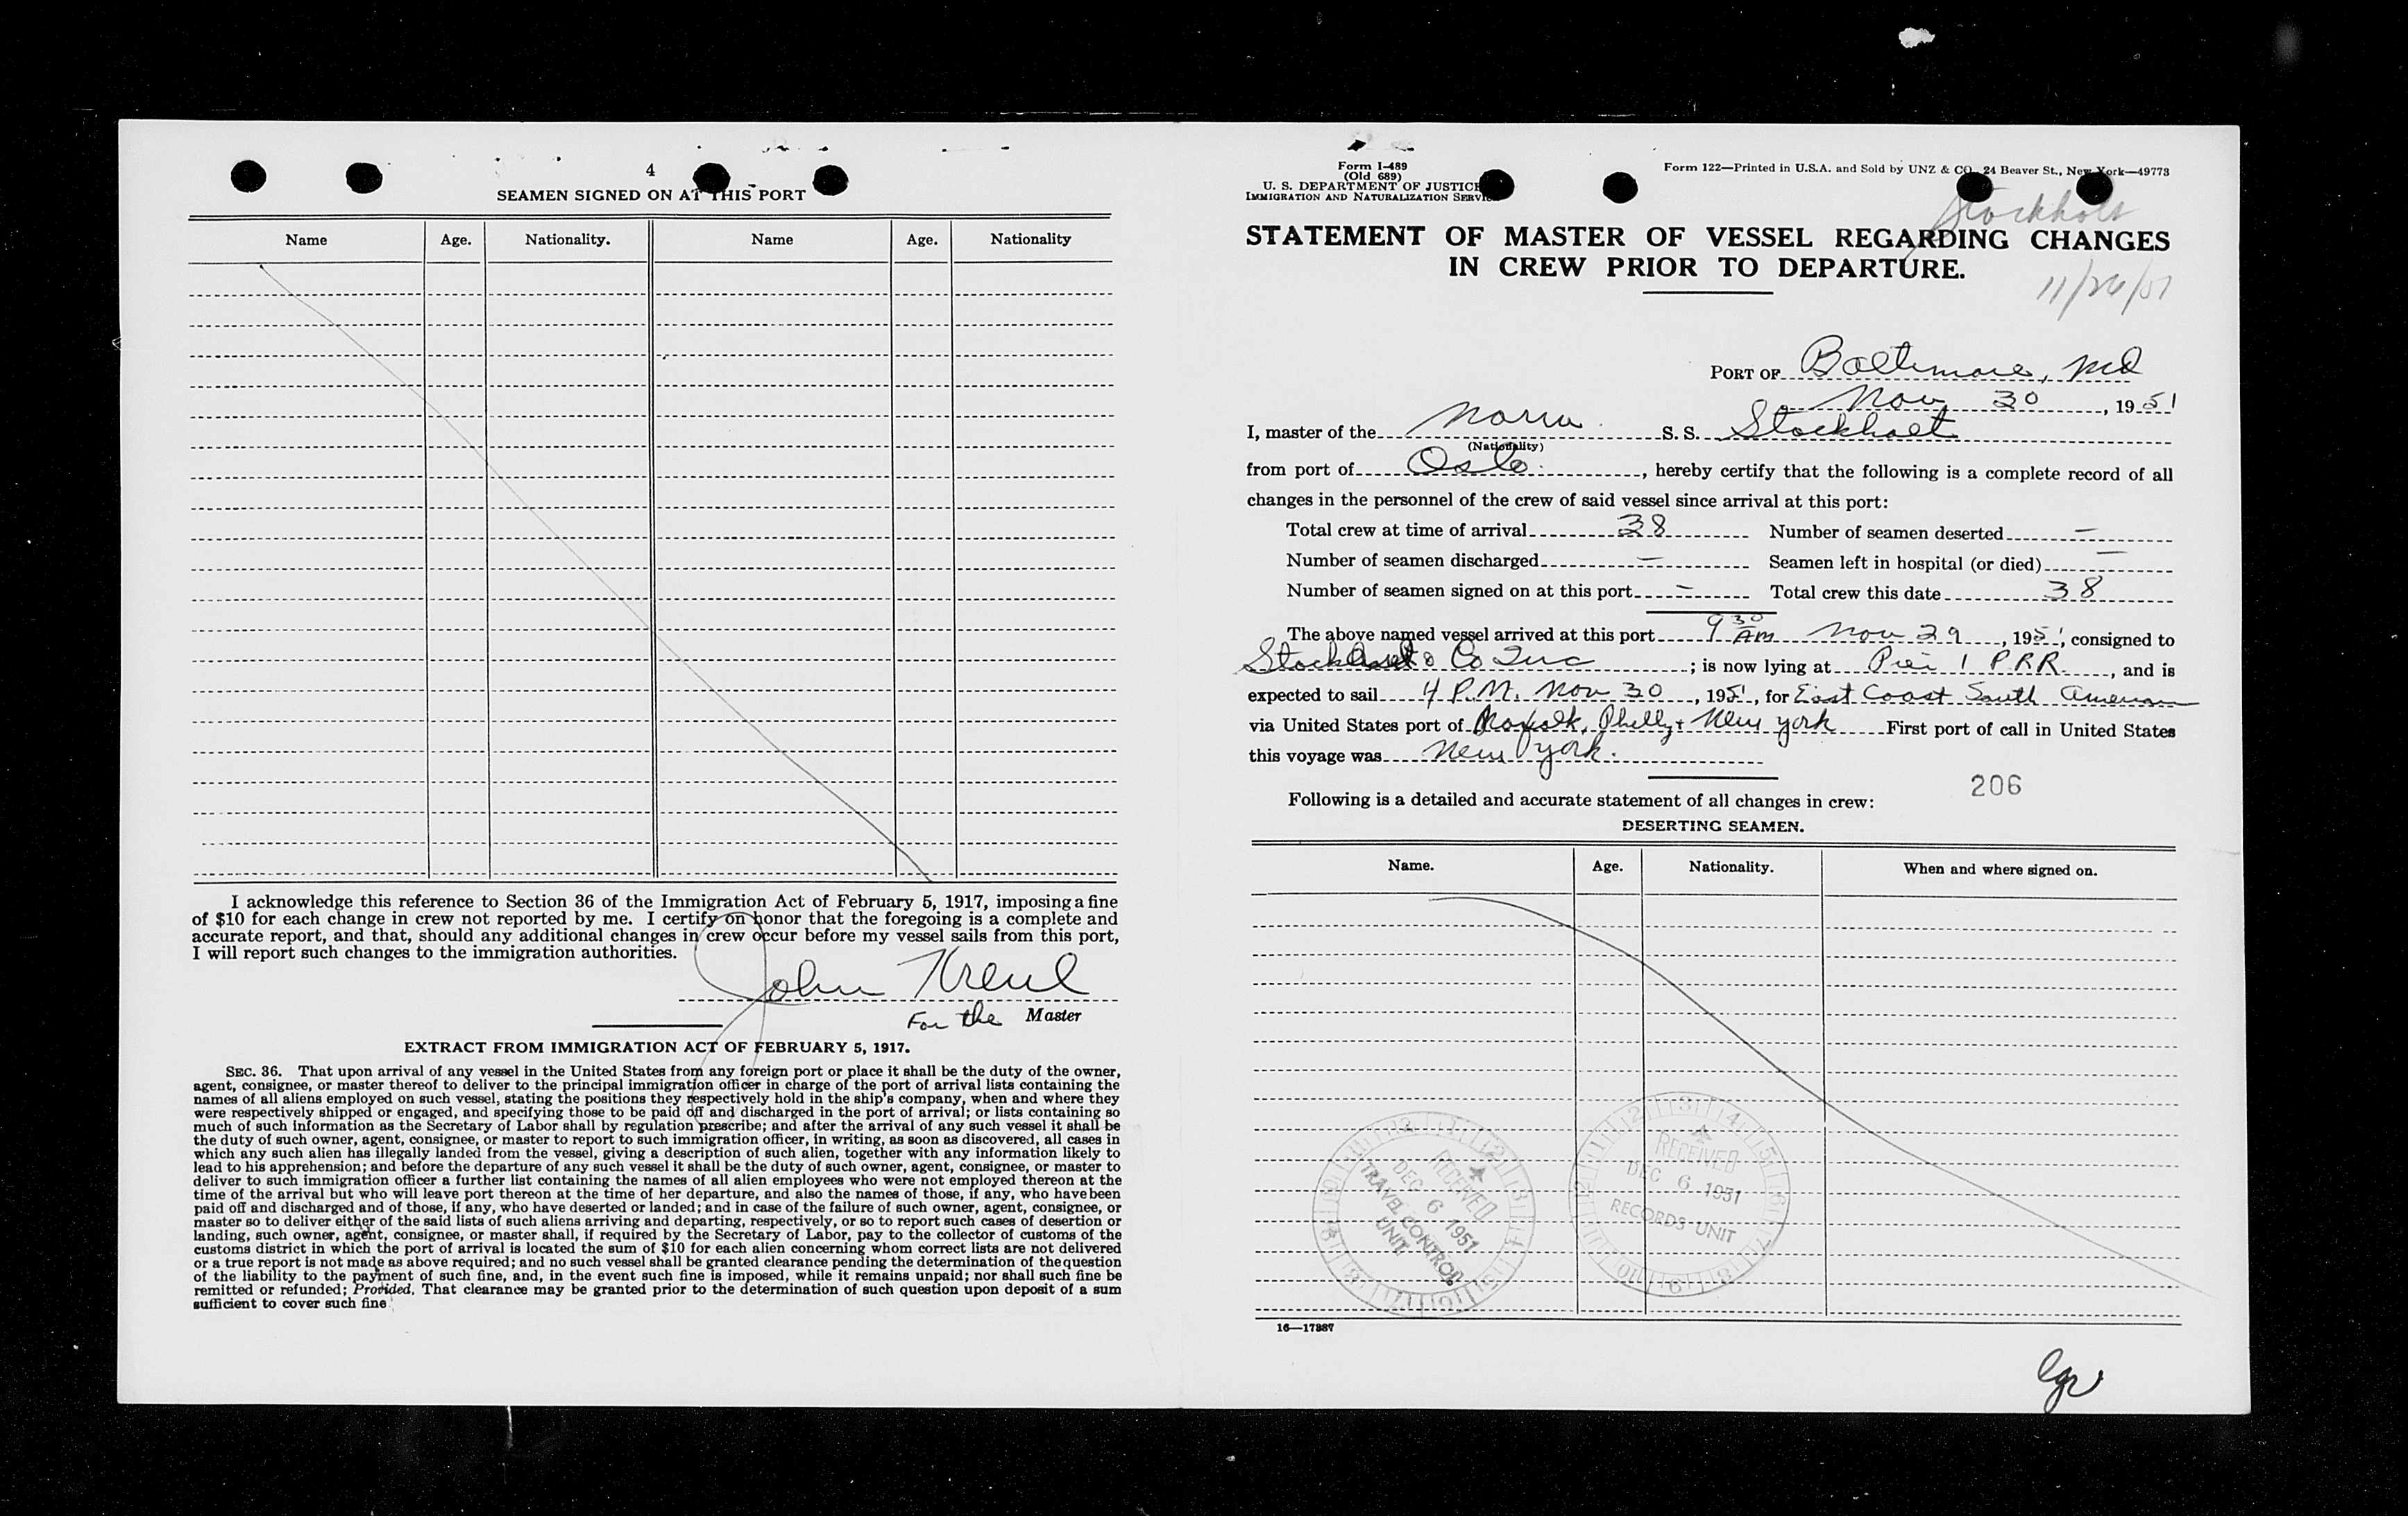 4
SEAMEN SIGNED ON AT THIS PORT
Name Age. Nationality. Name Age. Nationality
I acknowledge this reference to Section 36 of the Immigration Act of February 5, 1917, imposing a fine
of $10 for each change in crew not reported by me. I certify on honor that the foregoing is a complete and
accurate report, and that, should any additional changes in crew occur before my vessel sails from this port,
I will report such changes to the immigration authorities.
John
For the Master
EXTRACT FROM IMMIGRATION ACT OF FEBRUARY 5, 1917.
SEC. 36. That upon arrival of any vessel in the United States from any foreign port or place it shall be the duty of the owner,
agent, consignee, or master thereof to deliver to the principal immigration officer in charge of the port of arrival lists containing the
names of all aliens employed on such vessel, stating the positions they respectively hold in the ship's company, when and where they
were respectively shipped or engaged, and specifying those to be paid off and discharged in the port of arrival; or lists containing so
much of such information as the Secretary of Labor shall by regulation prescribe; and after the arrival of any such vessel it shall be
the duty of such owner, agent, consignee, or master to report to such immigration officer, in writing, as soon as discovered, all cases in
which any such alien has illegally landed from the vessel, giving a description of such alien, together with any information likely to
lead to his apprehension; and before the departure of any such vessel it shall be the duty of such owner, agent, consignee, or master to
deliver to such immigration officer a further list containing the names of all alien employees who were not employed thereon at the
time of the arrival but who will leave port thereon at the time of her departure, and also the names of those, if any, who have been
paid off and discharged and of those, if any, who have deserted or landed; and in case of the failure of such owner, agent, consignee, or
master so to deliver either of the said lists of such aliens arriving and departing, respectively, or so to report such cases of desertion or
landing, such owner, agent, consignee, or master shall, if required by the Secretary of Labor, pay to the collector of customs of the
customs district in which the port of arrival is located the sum of $10 for each alien concerning whom correct lists are not delivered
or a true report is not made as above required; and no such vessel shall be granted clearance pending the determination of the question
of the liability to the payment of such fine, and, in the event such fine is imposed, while it remains unpaid; nor shall such fine be
remitted or refunded; Provided, That clearance may be granted prior to the determination of such question upon deposit of a sum
sufficient to cover such fine
Form I-489
(Old 689)
U. S. DEPARTMENT OF JUSTICE
IMMIGRATION AND NATURALIZATION SERVICE
Form 122—Printed in U.S.A. and Sold by UNZ & CO. 24 Beaver St., New York—49773
Stockholt
STATEMENT OF MASTER OF VESSEL REGARDING CHANGES
IN CREW PRIOR TO DEPARTURE.
PORT OF Baltimore, Md
Nov 30, 1951
I, master of the Norw S. S. Stockholt
(Nationality)
from port of Oslo, hereby certify that the following is a complete record of all
changes in the personnel of the crew of said vessel since arrival at this port:
Total crew at time of arrival 38 Number of seamen deserted —
Number of seamen discharged — Seamen left in hospital (or died) —
Number of seamen signed on at this port — Total crew this date 38
The above named vessel arrived at this port 9 30 AM Nov 29, 1951, consigned to
Co Inc; is now lying at Pier 1 P.R.R., and is
expected to sail 4 P.M. Nov 30, 1951, for East Coast South American
via United States port of Norfolk, Philly + New York First port of call in United States
this voyage was New York.
206
Following is a detailed and accurate statement of all changes in crew:
DESERTING SEAMEN.
Name. Age. Nationality. When and where signed on.
RECEIVED
DEC 6 1951
TRAVEL CONTROL
UNIT
RECEIVED
DEC 6 1951
RECORDS UNIT
16—17887